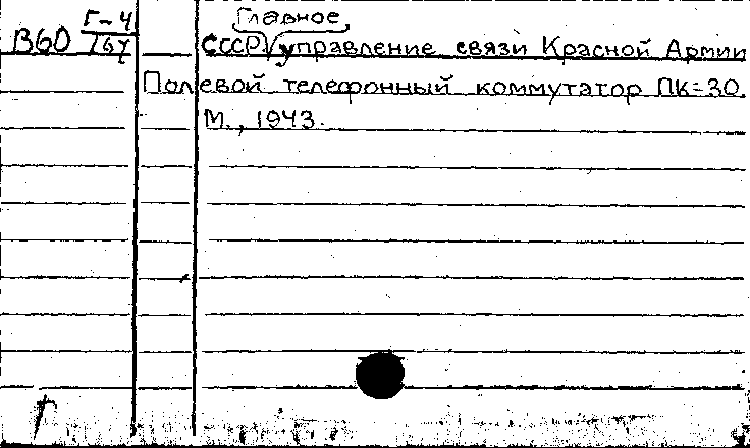 Г-4
Главное
В60 167 СССР управление связи Красной Армии
Полевой телефонный коммутатор ПК-30.
М., 1943.
Г